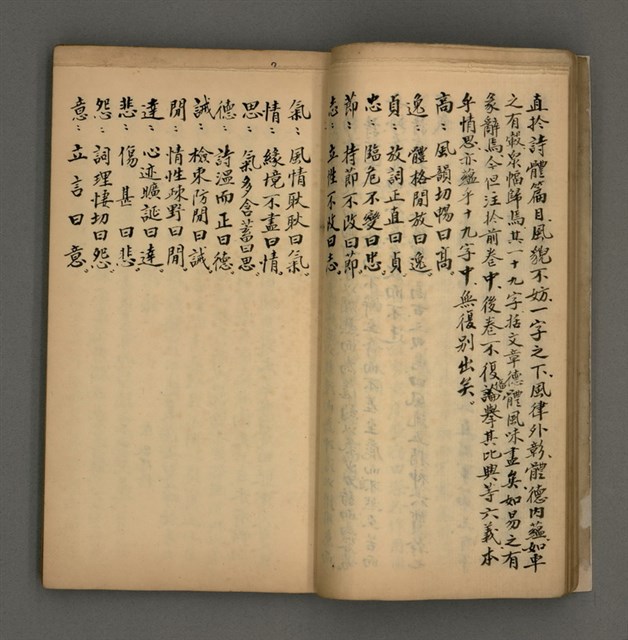 直於詩體篇目風貌不妨一字之下風律外彰體德內蘊如車
之有轂眾幅歸焉其一十九字括文章德體風味盡矣如易之有
彖辭焉今但注於前卷中後卷不復論舉其比興等六義本
乎情思亦蘊乎十九字中無復別出矣。
高：風韻切暢曰高。
逸：體格閒放曰逸。
貞：放詞正直曰貞
忠：臨危不變曰忠。
節：持節不改曰節。
志：立性不改曰志。
氣：風情耿耿曰氣。
情：緣境不盡曰情。
思：氣多含蓄曰思。
德：詩溫而正曰德。
誠：檢束防閑曰誠。
閒：情性疎野曰閒
達：心迹曠誕曰達。
悲：傷甚曰悲。
怨：詞理悽切曰怨。
意：立言曰意。